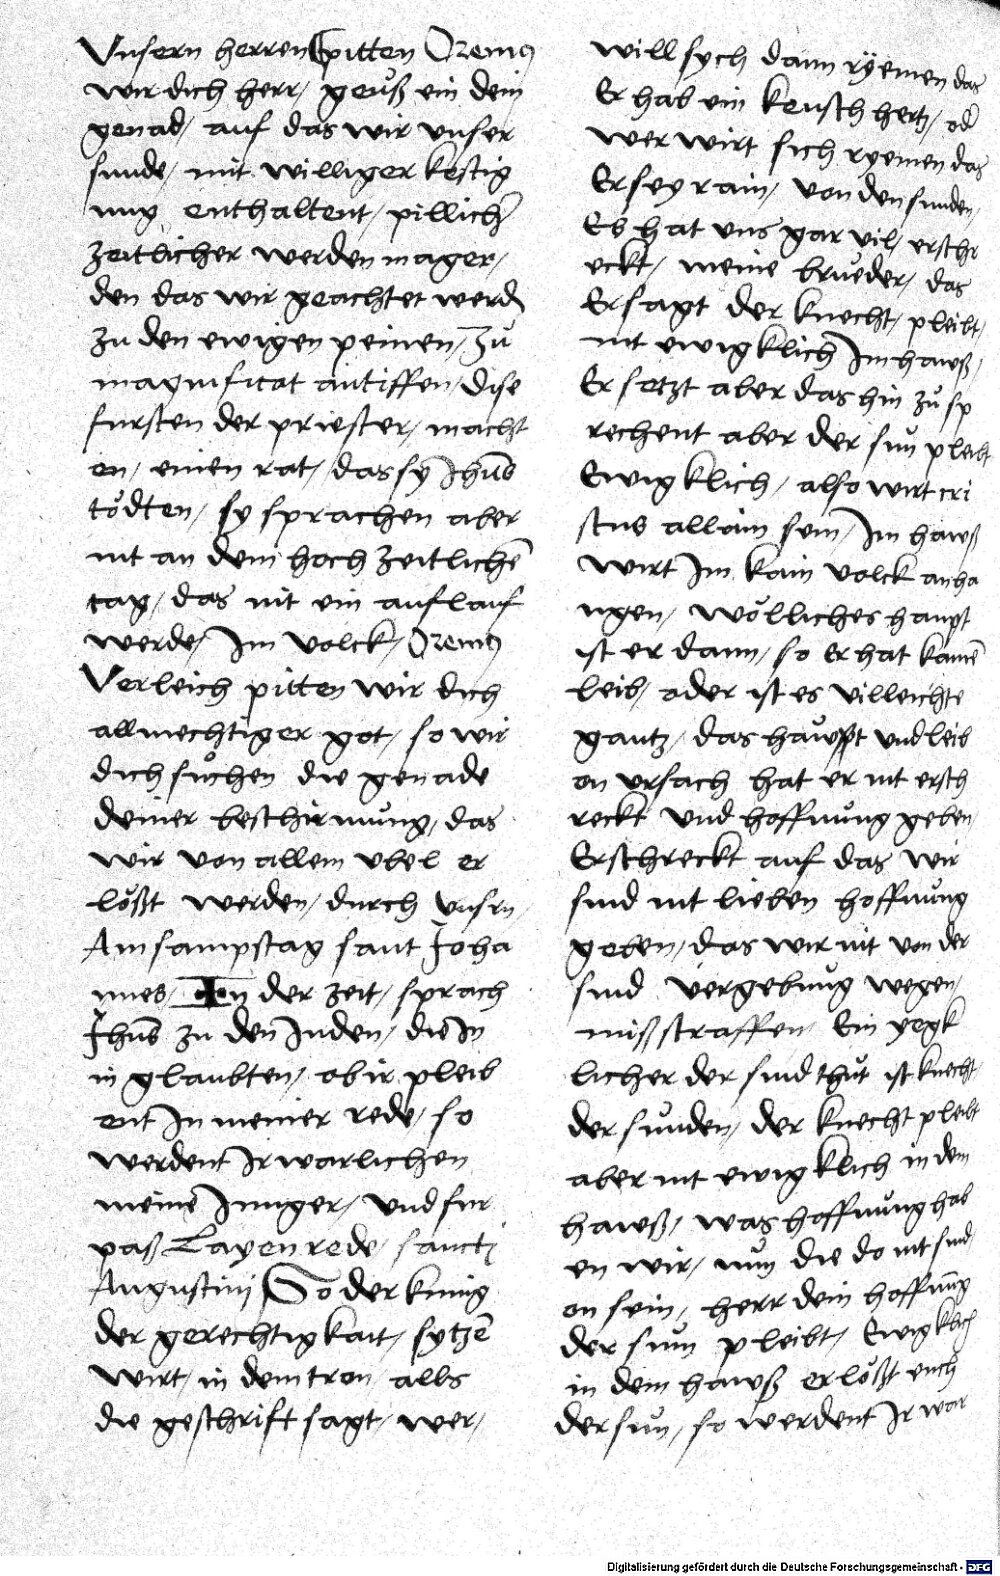 Vnsern herren pitten Oremus
wir dich herr / geuͦß ein dein
genad / auf das wir vnser
sunde / mit williger kestig
ung enthaltent / pillicher
zeitlicher werden mager /
den das wir geachtet werd
zu den ewigen peinen / Zuͦ
magnificat antiffen / dise
fursten der priester / macht
en / einen rat / das sy Jhūs
toͤdten / sy sprachen aber
nit an dem hoch zeitlichē
tag / das nit ein auflauf
werde / Im volck / Oremus
Verleich pitten wir dich
allmechtiger got / so wir
dich suͦchen die genade
deiner beschirmuͦng / das
wir von allem vbel er
loͤßt werden / durch vnsrn /
Am sampstag sant Joha
nnes / In der zeit / sprach
Jhūs zu den Juden / die In
in glaubten / ob ir pleib
ent In meiner rede / so
werdent Ir warlichen
meine Junger / vnd fur
paß Layen rede / sancti
Augustinj So der kunig
der gerechtigkait / sytzē
wirt / in dem tron alls
die geschrift sagt / wer /
will sych dann ryemen das
Er hab ein keusch hertz / od
wer wirt sich ryemen das
Er sey rain / von den sunden /
Es hat vns gar vil / erschr
eckt / meine bruͤder / das
Er sagt der knecht / pleibt /
nit ewigklich Im hawß /
Er setzt aber das hin zuͦ sp
rechent aber der suͦn pleibt
Ewigklich / also wirt cri
stus allain sein / Im hawß
wirt Im kain volck anha
ngen / woͤlliches haupt
ist er dann / so Er hat kainē
leib / oder ist es villeichte
gantz / das hauͦpt vnd leib
on vrsach hat er nit ersch
reckt vnd hoffnuͦng geben /
Erschreckt auf das wir
sind nit lieben hoffnuͦng
geben / das wir nit von der
sind vergebuͦng wegen /
mißstraffen / Ein yegk
licher der sind thuͦt ist knecht /
der suͦnden / der knecht pleibt
aber nit ewigklich in dem
hawß / was hoffnuͦng hab
en wir / nuͦn die do nit sind
on sein / herr dein hoffnūg
der suͦn pleibt / Ewigklich
in dem hawß erloͤßt euch
der suͦn / so werdent Ir war
Digitalisierung gefördert durch die Deutsche Forschungsgemeinschaft - DFG